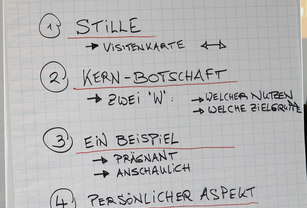 1 STILLE
→ VISITENKARTE ↔
2 KERN-BOTSCHAFT
→ ZWEI "W": → WELCHER NUTZEN
→ WELCHE ZIELGRUPPE
3 EIN BEISPIEL
→ PRÄGNANT
→ ANSCHAULICH
4 PERSÖNLICHER ASPEKT